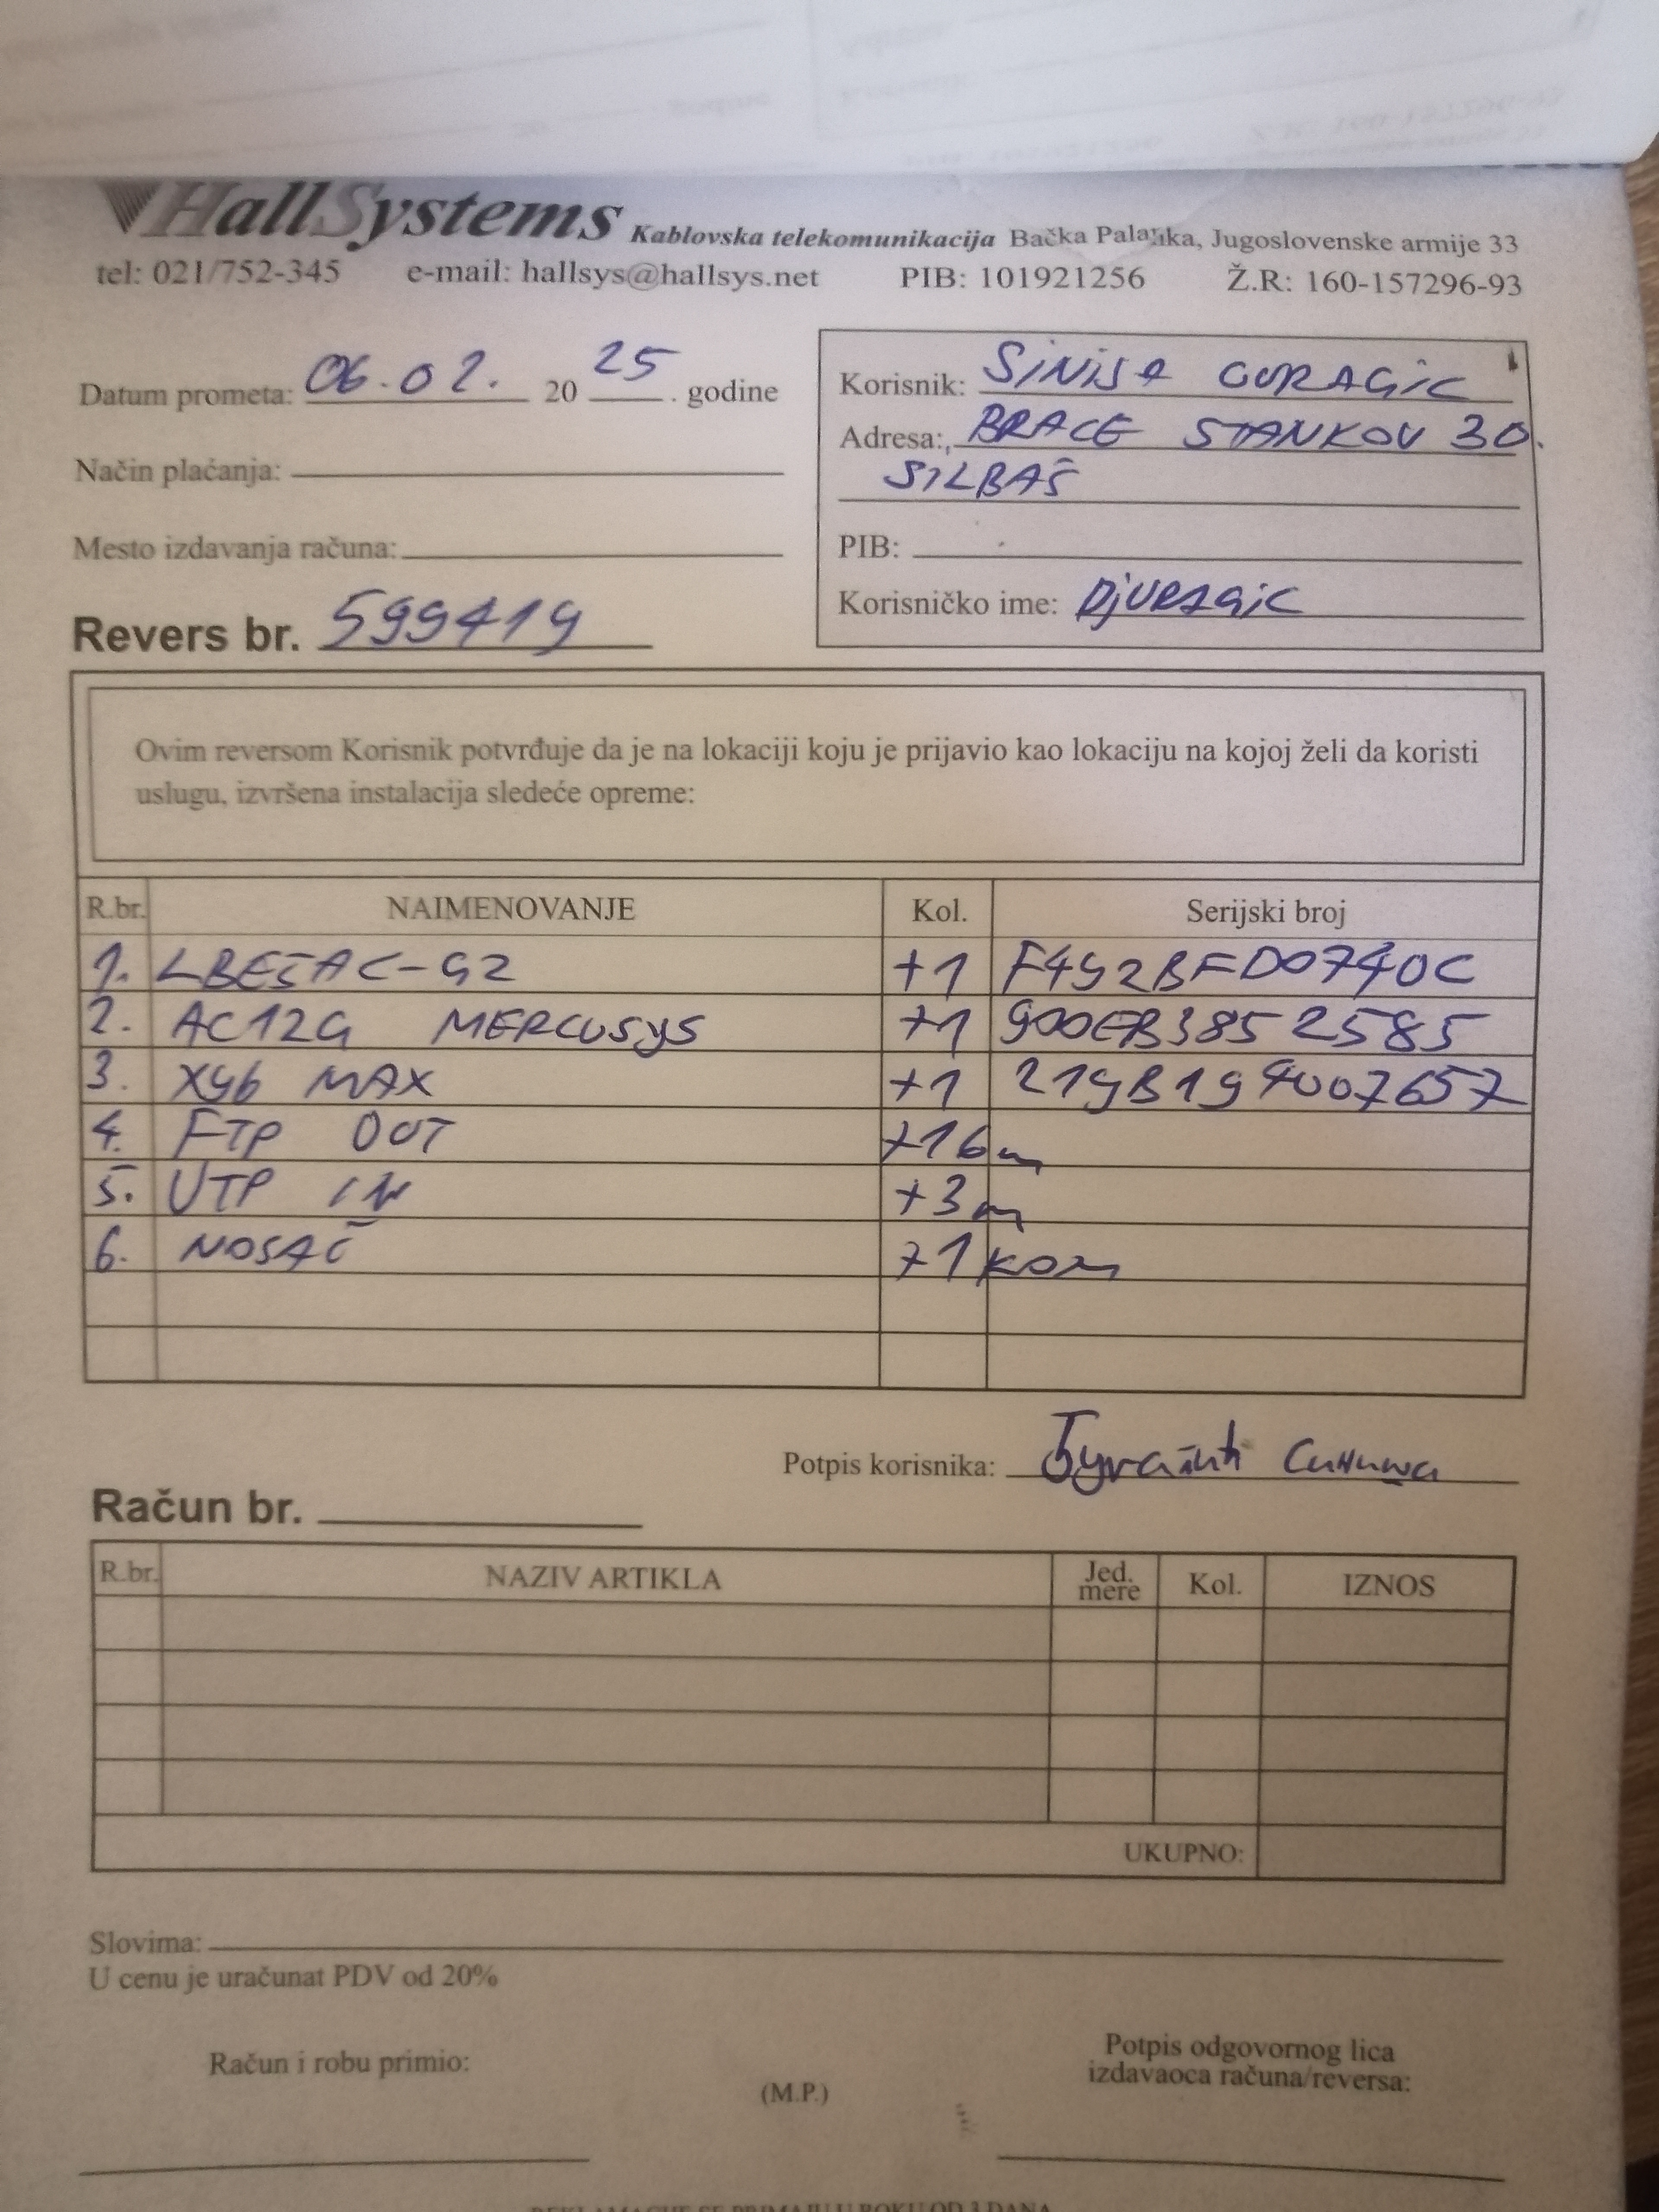 HallSystems Kablovska telekomunikacija Bačka Palanka, Jugoslovenske armije 33
tel: 021/752-345 e-mail: hallsys@hallsys.net PIB: 101921256 Ž.R: 160-157296-93
Datum prometa: 06.02. 20 25 . godine
Način plaćanja:
Mesto izdavanja računa:
Revers br. 599419
Korisnik: SINISA GURAGIC
Adresa: BRACE STANKOV 30.
SILBAŠ
PIB:
Korisničko ime: DjURAGIC
Ovim reversom Korisnik potvrđuje da je na lokaciji koju je prijavio kao lokaciju na kojoj želi da koristi
uslugu, izvršena instalacija sledeće opreme:
R.br. NAIMENOVANJE Kol. Serijski broj
1. LBE5AC-G2 +1 F492BFD0740C
2. AC12G MERCUSYS +1 900EB3852585
3. X96 MAX +1 219B194007657
4. FTP OUT +16m
5. UTP IN +3m
6. NOSAČ +1 kom
Potpis korisnika: Ђурагић Синиша
Račun br.
R.br. NAZIV ARTIKLA Jed. mere Kol. IZNOS
UKUPNO:
Slovima:
U cenu je uračunat PDV od 20%
Račun i robu primio:
(M.P.)
Potpis odgovornog lica
izdavaoca računa/reversa:
REKLAMACIJE SE PRIMAJU U ROKU OD 3 DANA